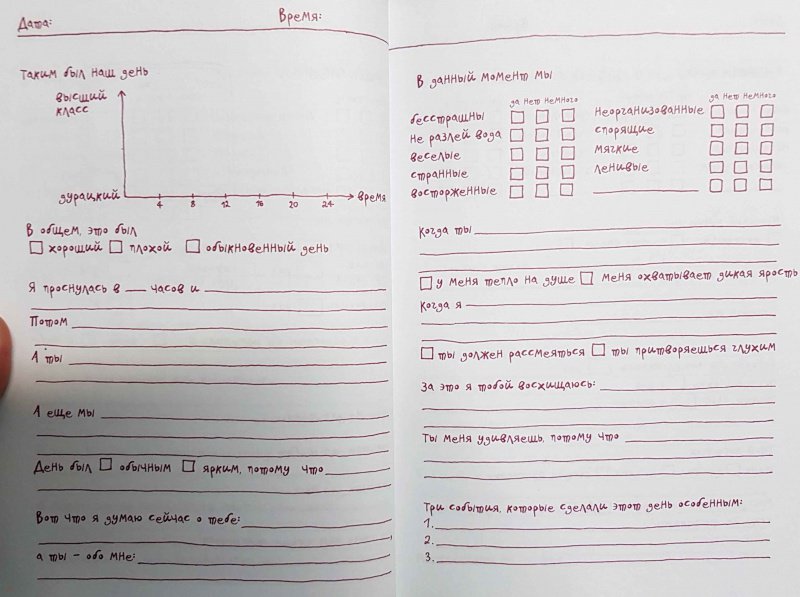 Дата:
Время:
Таким был наш день
высший
класс
дурацкий
4 8 12 16 20 24
время
В общем, это был
хороший плохой обыкновенный день
Я проснулась в ___ часов и
Потом
А ты
А еще мы
День был обычным ярким, потому что
Вот что я думаю сейчас о тебе:
а ты - обо мне:
В данный момент мы
да нет немного
да нет немного
бесстрашны
не разлей вода
веселые
странные
восторженные
неорганизованные
спорящие
мягкие
ленивые
когда ты
у меня тепло на душе меня охватывает дикая ярость
когда я
ты должен рассмеяться ты притворяешься глухим
За это я тобой восхищаюсь:
Ты меня удивляешь, потому что
Три события, которые сделали этот день особенным:
1.
2.
3.